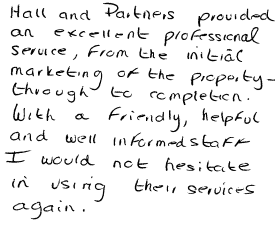 Hall and Partners provided
an excellent professional
service, from the initial
marketing of the property -
through to completion.
With a friendly, helpful
and well informed staff
I would not hesitate
in using their services
again.